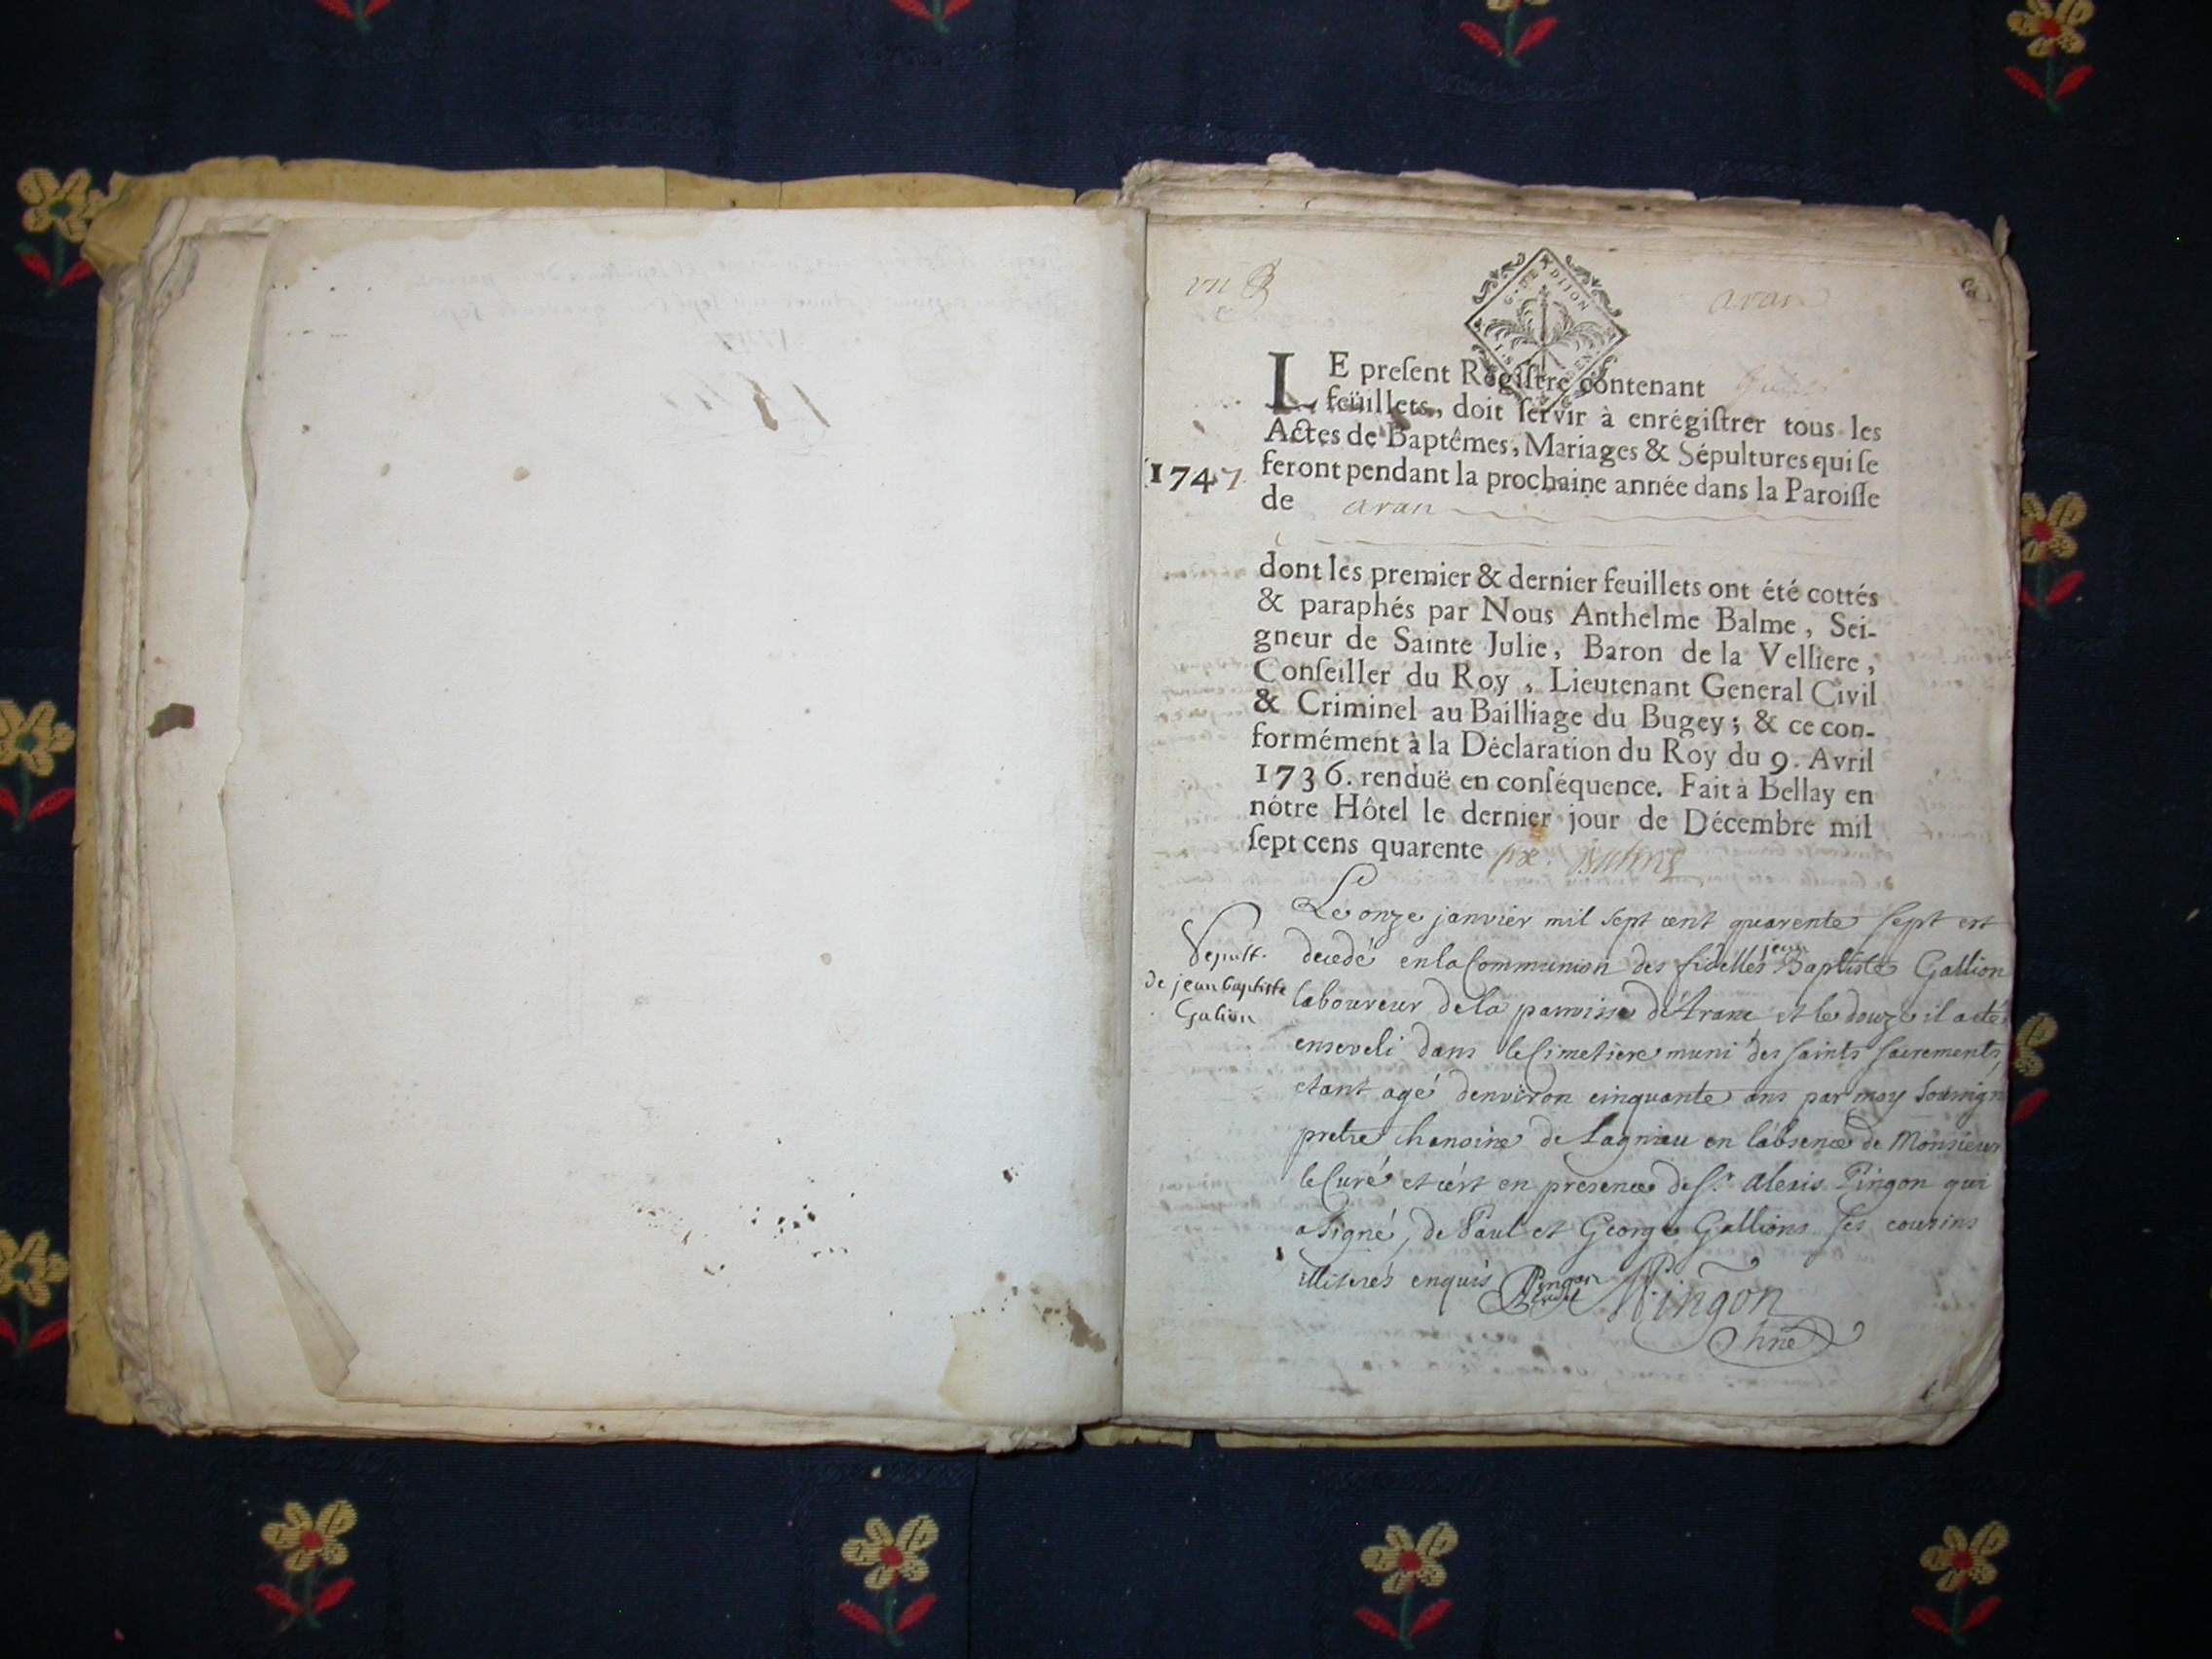 aran
LE preſent Regiſtre contenant
feüillets, doit ſervir à enrégiſtrer tous les
Actes de Baptêmes, Mariages & Sépultures qui ſe
1747 feront pendant la prochaine année dans la Paroiſſe
de aran
dont les premier & dernier feuillets ont été cottés
& paraphés par Nous Anthelme Balme, Sei-
gneur de Sainte Julie, Baron de la Velliere,
Conſeiller du Roy, Lieutenant General Civil
& Criminel au Bailliage du Bugey; & ce con-
formément à la Déclaration du Roy du 9. Avril
1736. renduë en conſéquence. Fait à Bellay en
nôtre Hôtel le dernier jour de Décembre mil
ſept cens quarente
Le onze janvier mil sept cent quarente sept est
decedé en la Communion des fidelles jean Baptiste Gallion
laboureur de la parroisse d'Aranc et le douze il a eté
enseveli dans le Cimetiere muni des saints sacrements,
etant agé denviron cinquante ans par moy soussign
pretre chanoine de Lagnieu en l'absence de Monsieur
le Curé et c'est en presence de Sr. Alexis Pingon qui
a signé, de Paul et George Gallions ses cousins
illiterés enquis Pingon
Sepult.
de jean baptiste
Galion
Pingon